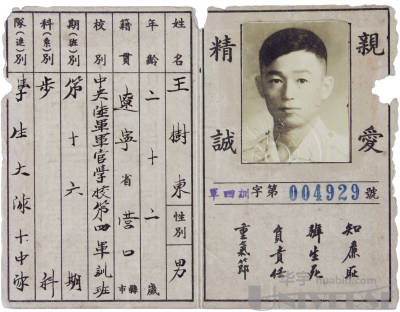 親愛
精誠
軍四訓字第004929號
知廉恥
辨生死
負責任
重氣節
姓名 王樹東 性別 男
年齡 二十二 歲
籍貫 遼寧省營口縣市
校別 中央陸軍軍官學校第四軍訓班
期(班)別 第十六期
科(系)別 步科
隊(連)別 學生大隊十中隊
华宇
huabid.com